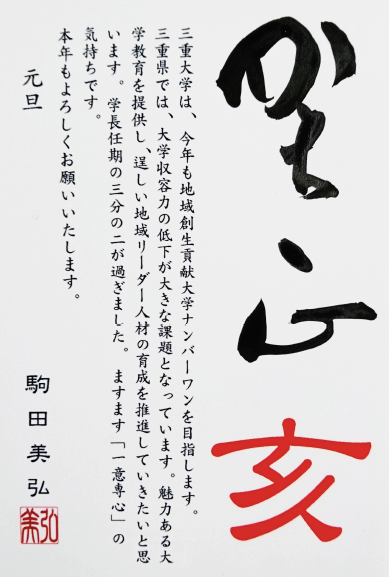 賀正
亥
三重大学は、今年も地域創生貢献大学ナンバーワンを目指します。
三重県では、大学収容力の低下が大きな課題となっています。魅力ある大
学教育を提供し、逞しい地域リーダー人材の育成を推進していきたいと思
います。学長任期の三分の二が過ぎました。ますます「一意専心」の
気持ちです。
本年もよろしくお願いいたします。
元旦
駒田美弘
美弘